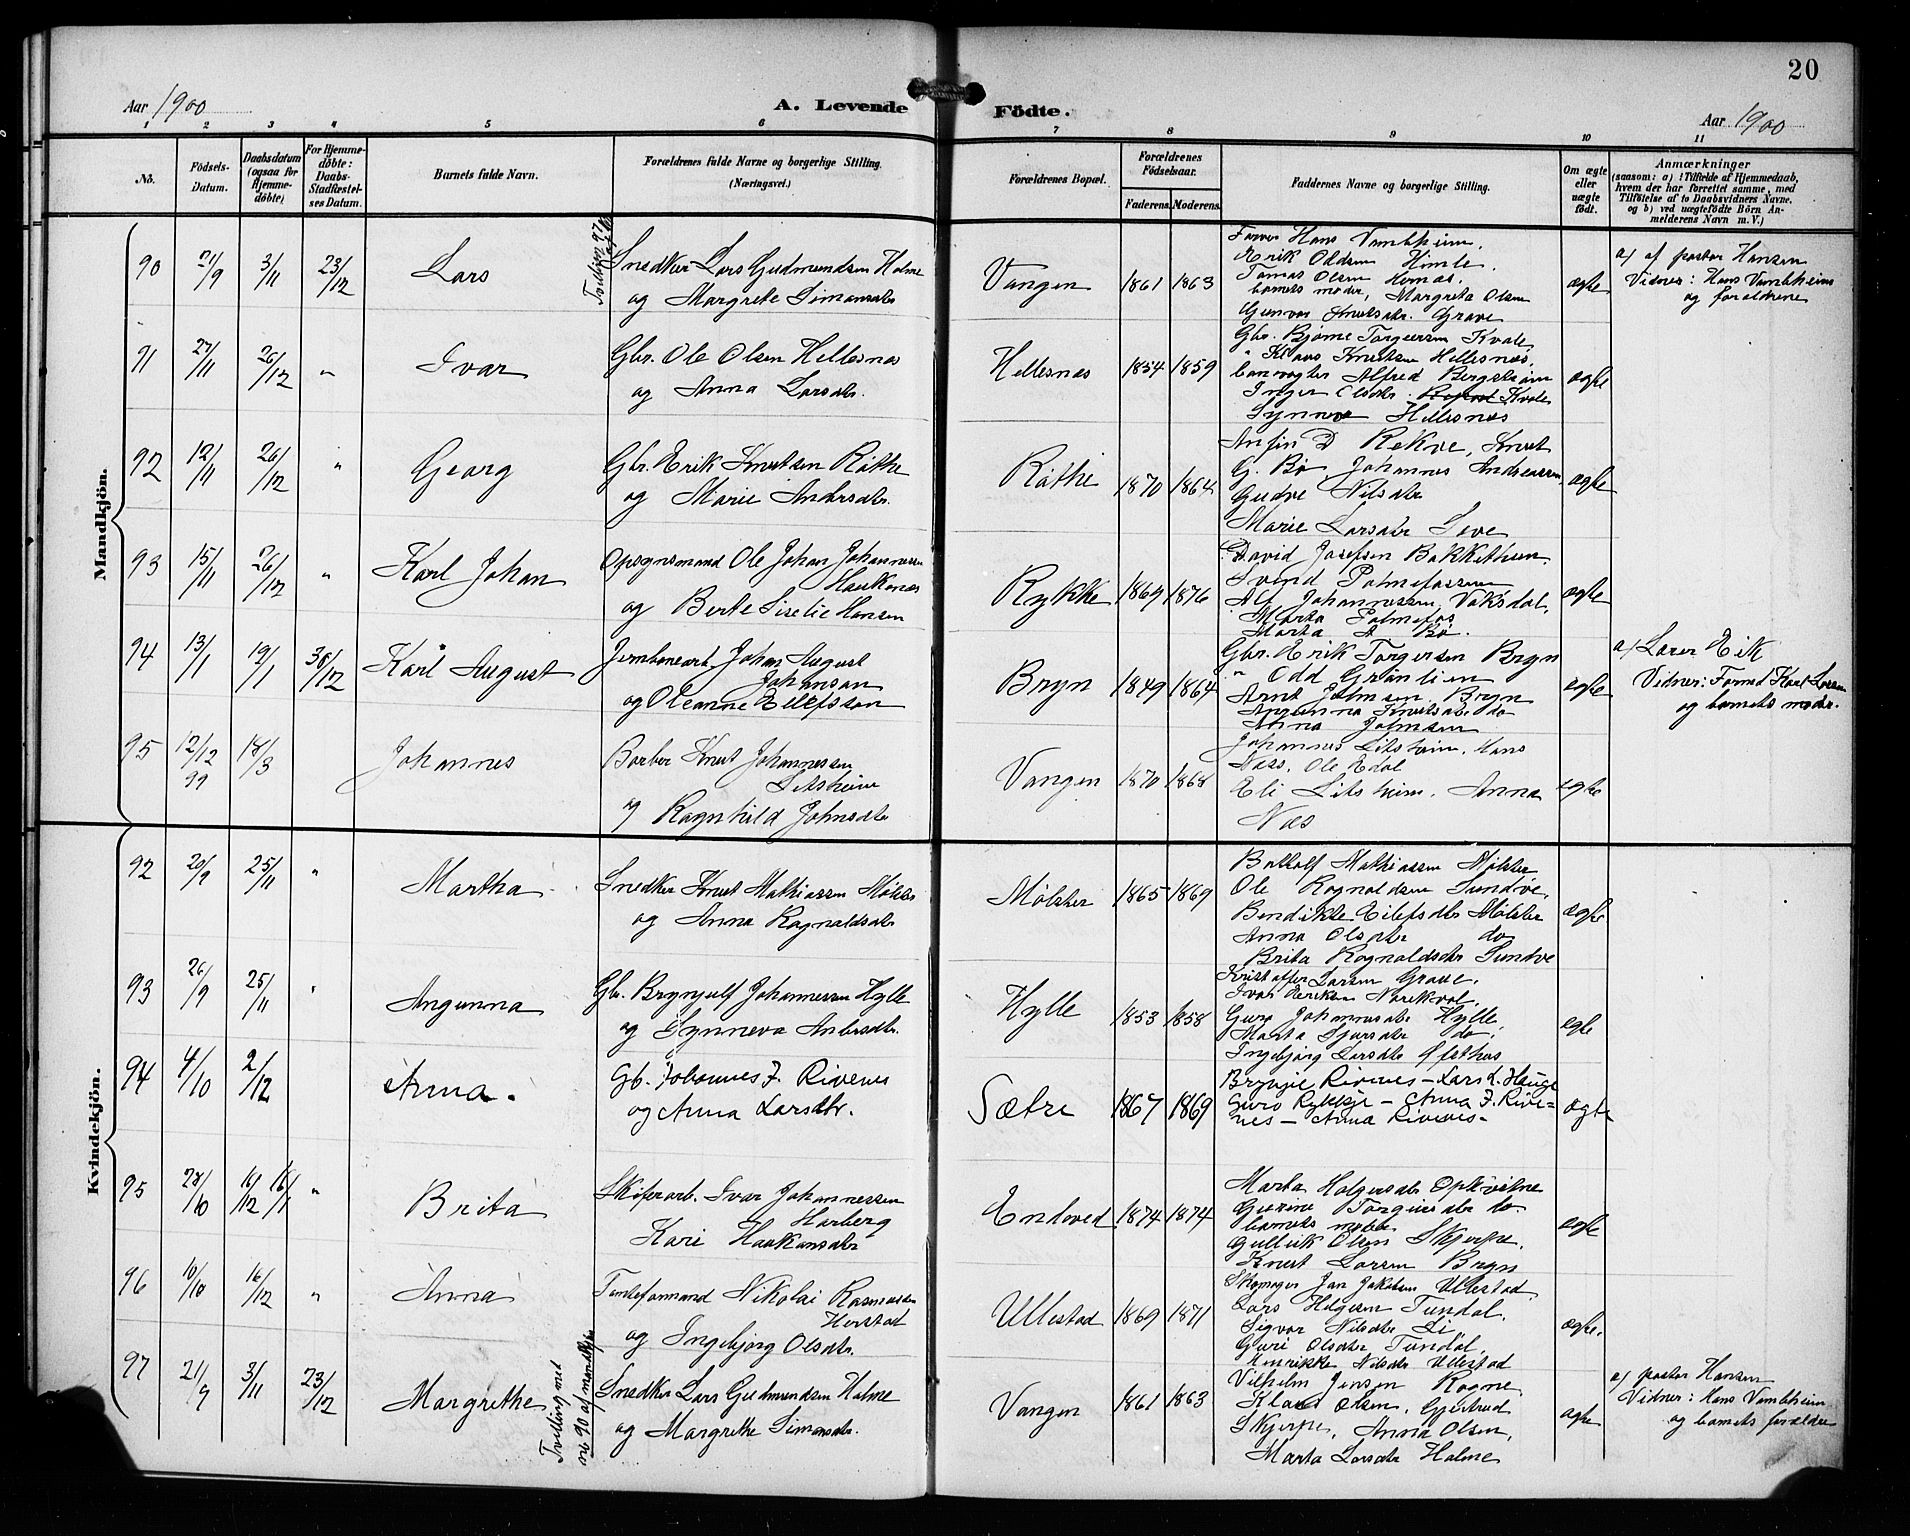 20
Aar 1900
A. Levende Födte.
Aar 1900
1 2 3 4 5 6 7 8 9 10 11
No.
Födsels-Datum.
Daabsdatum (ogsaa for Hjemme-döbte)
For Hjemme-döbte: Daabs-Stadfæstel-ses Datum.
Barnets fulde Navn.
Forældrenes fulde Navne og borgerlige Stilling.
(Næringsvei.)
Forældrenes Bopæl.
Forældrenes Födselsaar.
Faderens. Moderens.
Faddernes Navne og borgerlige Stilling.
Om ægte eller uægte födt.
Anmærkninger
(saasom: a) i Tilfælde af Hjemmedaab,
hvem der har forrettet samme, med
Tilföielse af to Daabsvidners Navne.
og b) ved uægtefödte Börn An-
melderens Navn m. V.)
Mandkjön.
90 21/9 3/11 23/12 Lars
Snedker Lars Gudmundsen Holme
og Margrete Simonsdtr
Vangen 1861 1863
Farver Hans Vambheim,
Erik Oldsen Himle,
Tomas Olsen Hernæs,
barnets moder, Margreta Olsen
Gunvor Knutsdtr. Grave
ægte
a/ af pastor Hansen
Vidner: Hans Vambheim
og forældrene
91 27/11 26/12 " Ivar
Gbr. Ole Olsen Hellesnæs
og Anna Larsdtr.
Hellesnæs 1854 1859
Gbr. Bjørne Torgersen Kvale,
" Klaus Knutsen Hellesnæs,
banvogter Alfred Bergstrøm
Inger Olsdtr. Kvale
Synneve Hellesnæs
ægte
92 12/11 26/12 " Georg
Gbr. Erik Knutsen Råthe
og Marie Andersdtr.
Råthe 1870 1864
Anfin D Rekve, Knut
G. Bø Johannes Andreassen
Gudve Nilsdtr
Marie Larsdtr Seve
ægte
93 15/11 26/12 " Karl Johan
Opsynsmand Ole Johan Johannessen
Haukenæs
og Berte Siselie Hansen
Rykke 1869 1876
David Josefsen Bakkethun
Svend Palmefossen
Alf Johannessen Vaksdal,
Marta Palmefos
Marta A Bø.
ægte
94 13/1 19/1 30/12 Karl August
Jernbanearb. Johan August
Johansan
og Oleanne Eilefsson
Bryn 1849 1864
Gbr. Erik Torgersen Bryn
" Odd Grønlien
Arne Johnsen Bryn
Angunna Knutsdtr do
Anna Johnsen
ægte
a/ Lærer Eik
Vidner: Formd Karl Larsen
og barnets moder.
95 12/12 99 18/3 Johannes
Barber Knut Johannessen
Litsheim
og Ragnhild Johnsdtr
Vangen 1870 1868
Johannes Litsheim, Hans
Næss, Ole Edal
Eli Litsheim, Anna
Næs
ægte
Kvindekjön.
92 20/9 25/11 " Martha
Snedker Knut Mathiassen Mølster
og Anna Ragnaldsdtr
Mølster 1865 1869
Ballolf Mathiassen Mølster
Ole Rognaldsen Sundve,
Bendikte Eilefsdtr Mølster
Anna Olsdtr do
Brita Rognaldsdtr Sundve
ægte
93 26/9 25/11 " Angunna
Gb. Brynjulf Johannessen Hylle
og Synneva Andersdtr.
Hylle 1853 1858
Kristoffer Larsen Grave,
Ivar Eriksen
Guro Johannesdtr Hylle,
Marta Sjursdtr do,
Ingebjørg Larsdtr Østhus
ægte
94 4/10 2/12 Anna.
Gb. Johannes J. Rivenes
og Anna Larsdtr.
Sætre 1867 1869
Brynjie Rivenes – Lars L. Hauge
Guro Rykkje – Anna J. Rive=
nes – Anna Rivenes –
ægte
95 27/10 16/12 16/1 " Brita
Skiferarb. Ivar Johannessen
Horberg
Kari Haakonsdtr
Endeved 1874 1874
Marta Holgersdtr Opkvitne
Gurine Torgersdtr do
barnets moder
Gulleik Olsen Skjerpe,
Knut Larsen Bryn
ægte
96 10/10 16/12 " Anna
Tømteformand Nikolai Rasmussen
Herstad
og Ingebjørg Olsdtr.
Ullestad 1869 1871
Skomager Jan Jakobsen Ullestad
Lars Helgesen Tundal,
Sigvor Nilsdtr Li
Guri Olsdtr Tundal,
Henrikke Nilsdtr Ullestad
ægte.
97 21/9 3/11 23/12 Margrethe
Tvilling med
no 90 af mandkjøn
Snedker Lars Gudmundsen Holme
og Margrethe Simonsdtr.
Vangen 1861 1863
Vilhelm Jensen Rogne
Klaus Olsen, Gjertrud
Skjerpe, Anna Olsen,
Marta Larsdtr Holme
ægte
a/ pastor Hansen
Vidner: Hans Vambheim
og barnets forældre